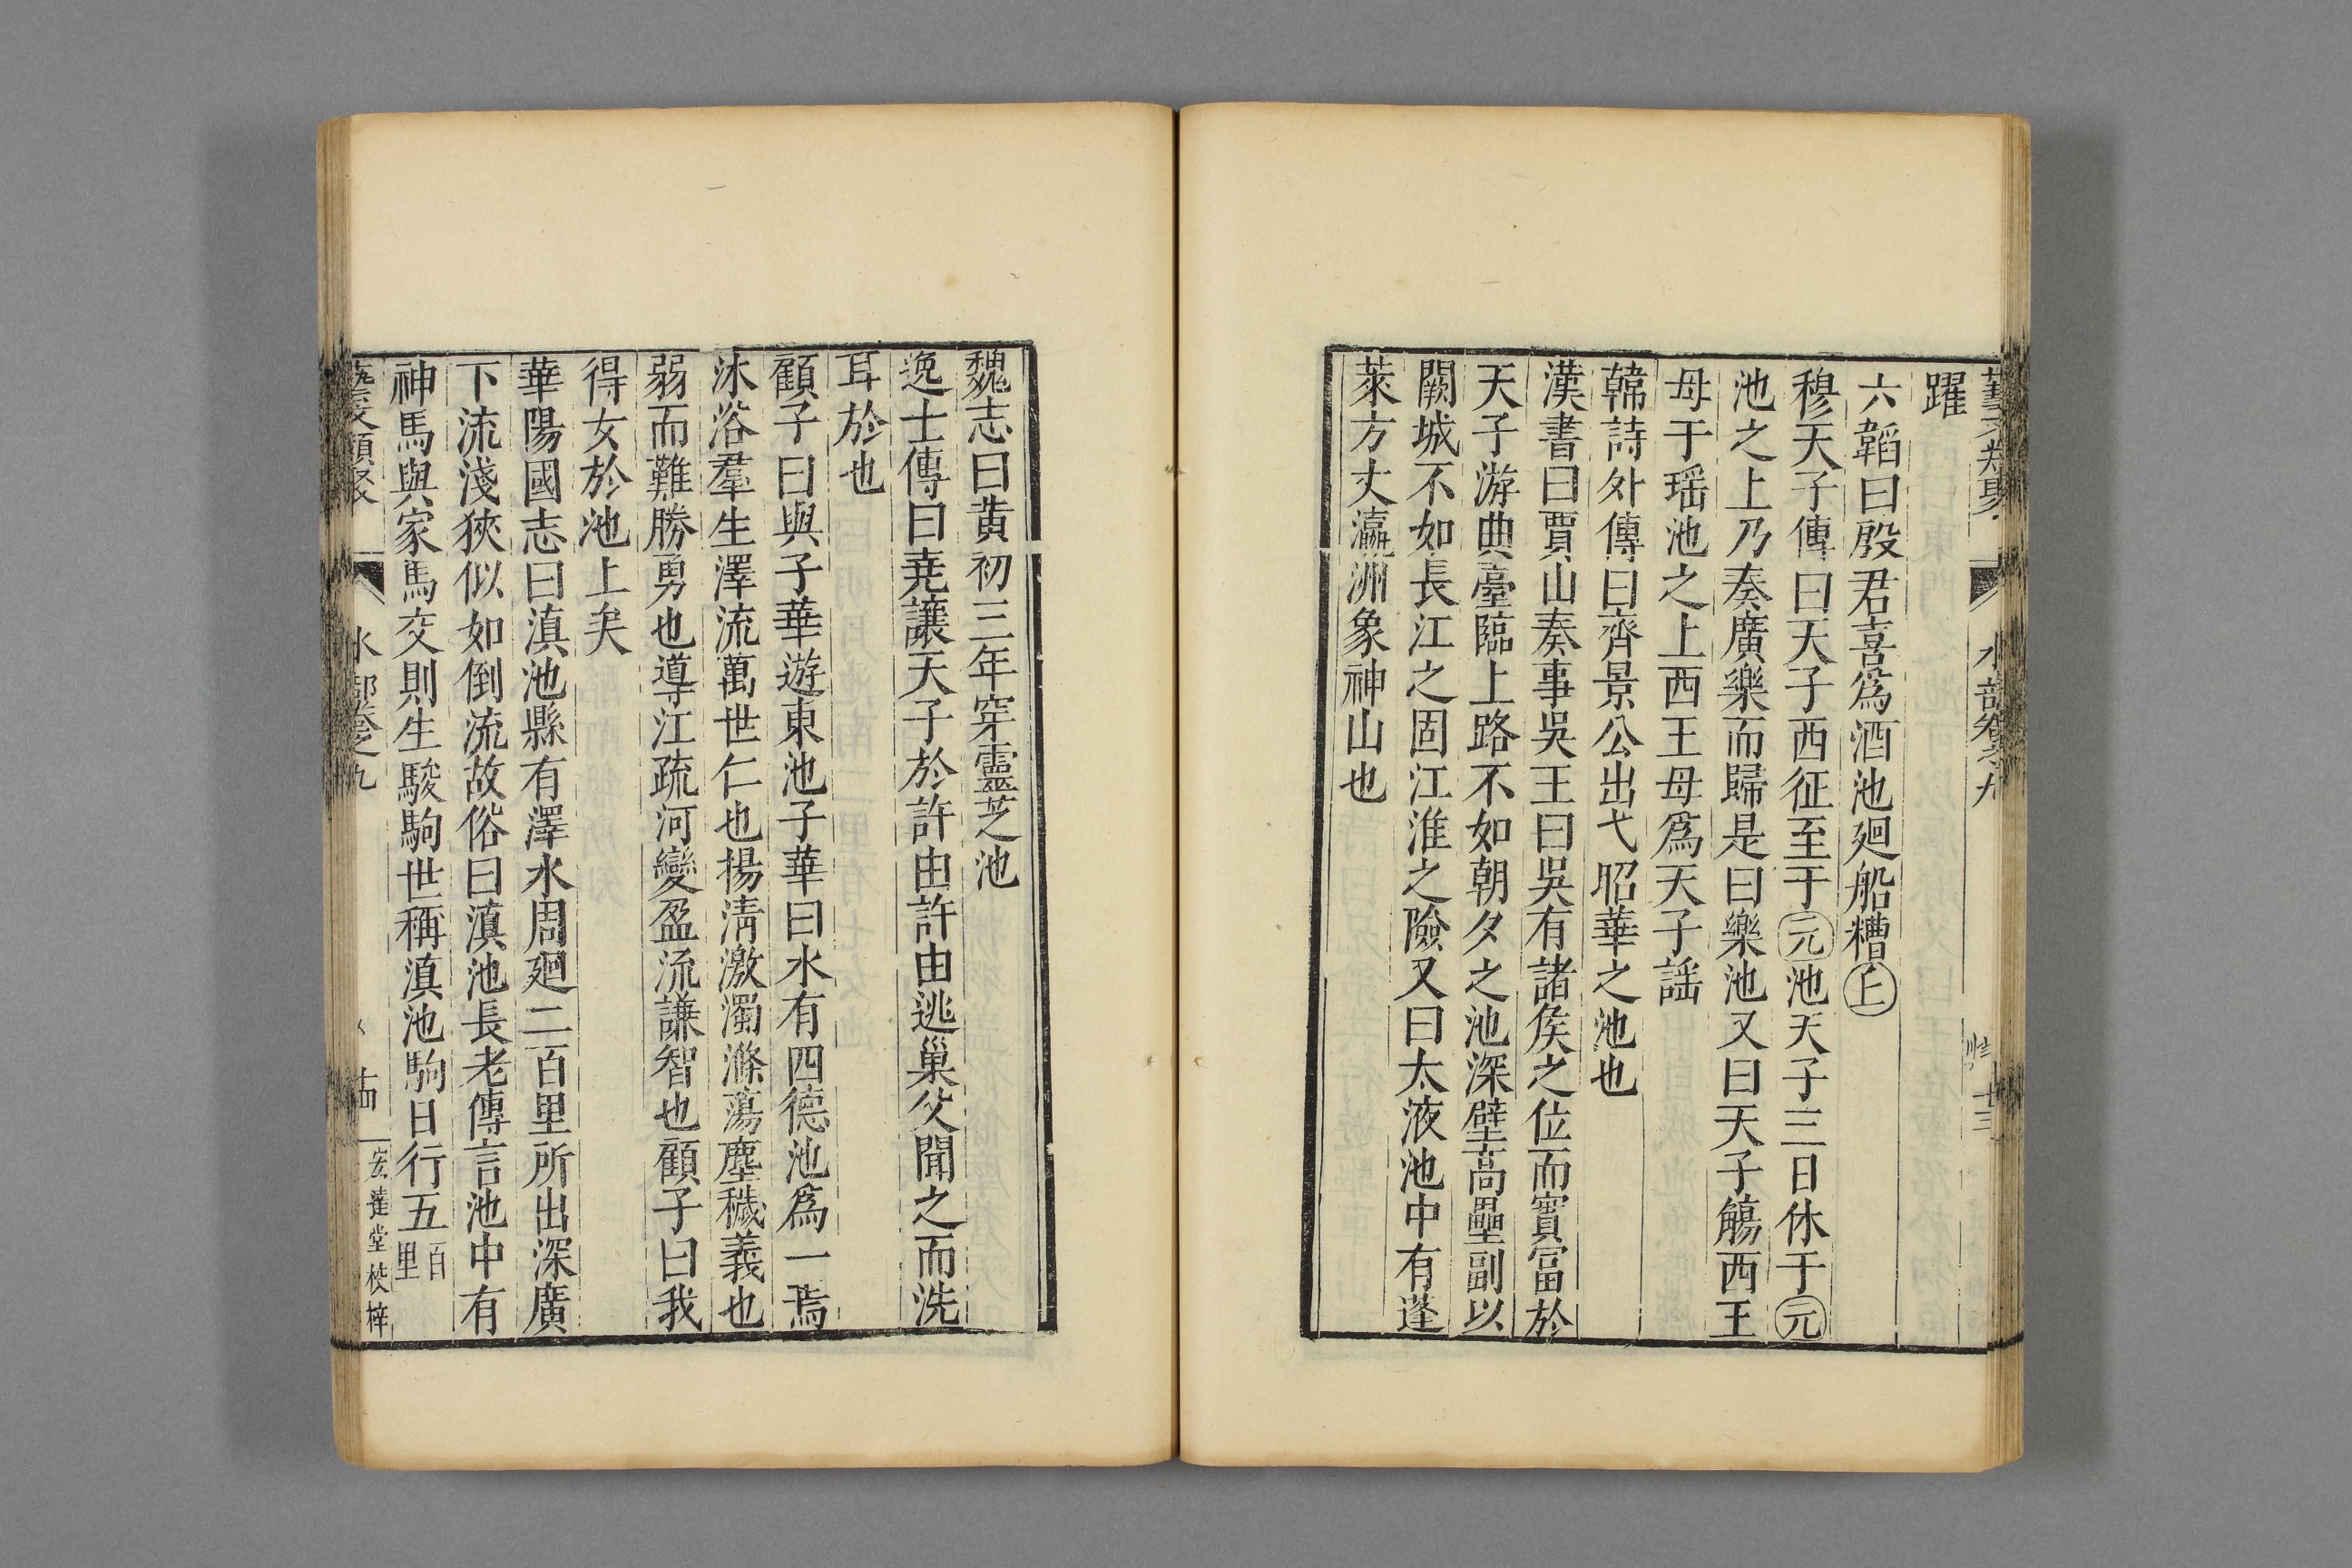 躍
六韜曰殷君喜爲酒池廻船糟上
穆天子傳曰天子西征至于元池天子三日休于元
池之上乃奏廣樂而歸是曰樂池又曰天子觴西王
母于瑶池之上西王母爲天子謡
韓詩外傳曰齊景公出弋昭華之池也
漢書曰賈山奏事吳王曰吳有諸矦之位而實冨於
天子游曲臺臨上路不如朝夕之池深壁高壘副以
闕城不如長江之固江淮之險又曰太液池中有蓬
萊方丈瀛洲象神山也
魏志曰黄初三年穿靈芝池
逸士傳曰堯讓天子於許由許由逃巢父聞之而洗
耳於也
顧子曰與子華遊東池子華曰水有四德池爲一焉
沐浴羣生澤流萬世仁也揚淸激濁滌蕩塵穢義也
弱而難勝勇也導江疏河變盈流謙智也顧子曰我
得女於池上矣
華陽國志曰滇池縣有澤水周廻二百里所出深廣
下流淺狹似如倒流故俗曰滇池長老傳言池中有
神馬與家馬交則生駿駒世稱滇池駒日行五百里
藝文類聚
水部卷之九
宏達堂校梓